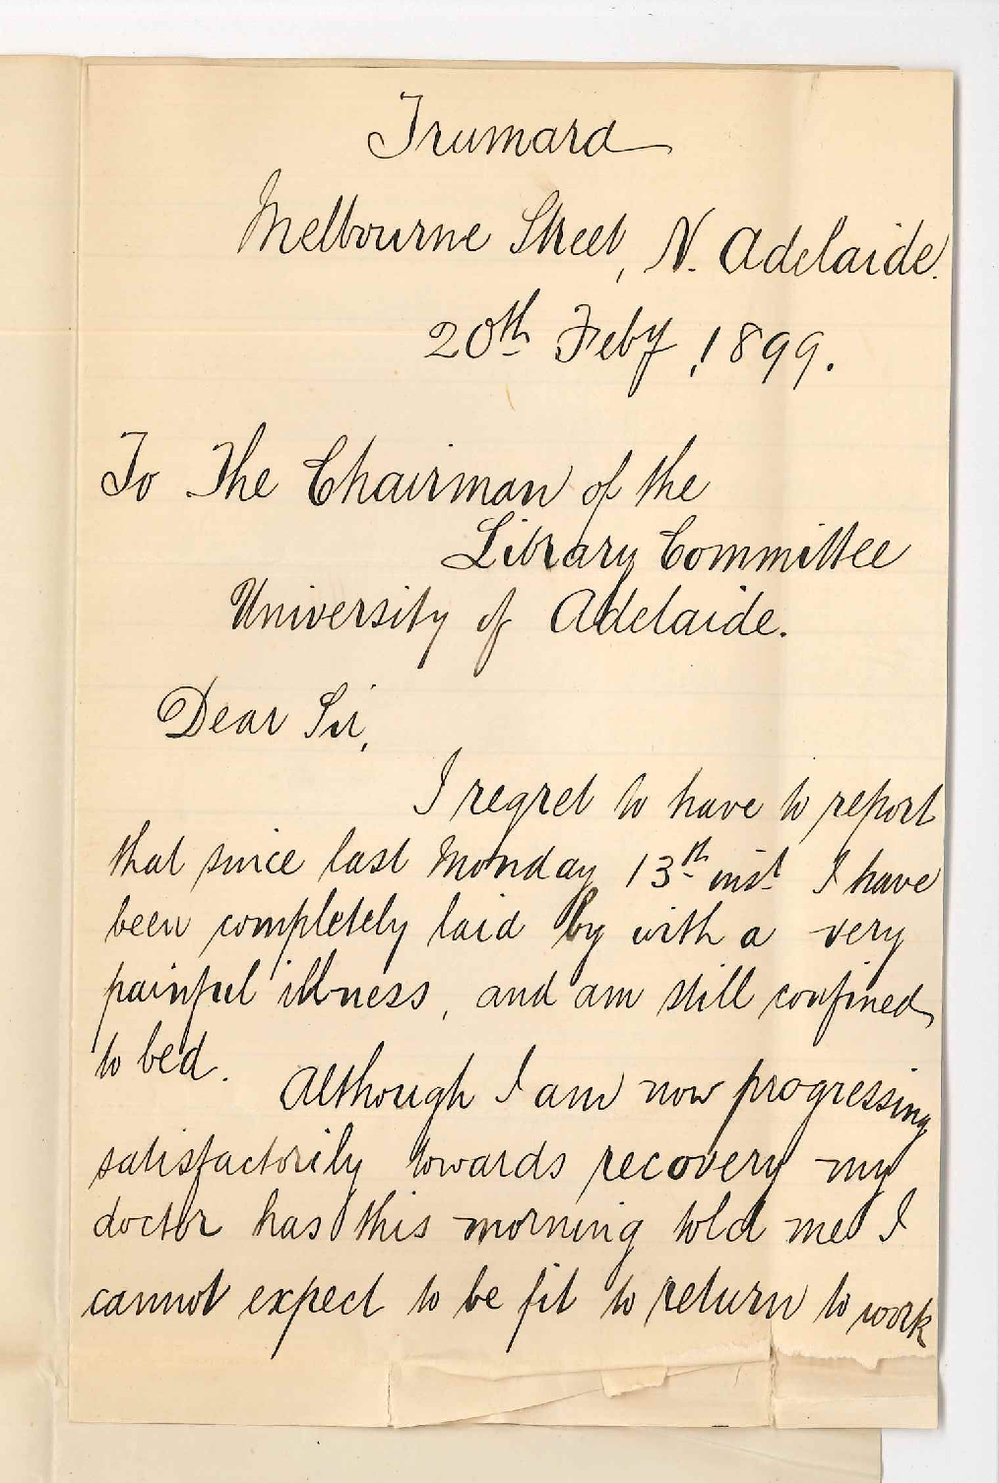 Trumara
Melbourne Street, N. Adelaide.
20th Feby, 1899.
To The Chairman of the
Library Committee
University of Adelaide.
Dear Sir,
I regret to have to report
that since last Monday 13th inst I have
been completely laid by with a very
painful illness, and am still confined
to bed. Although I am now progressing
satisfactorily towards recovery my
doctor has this morning told me I
cannot expect to be fit to return to work